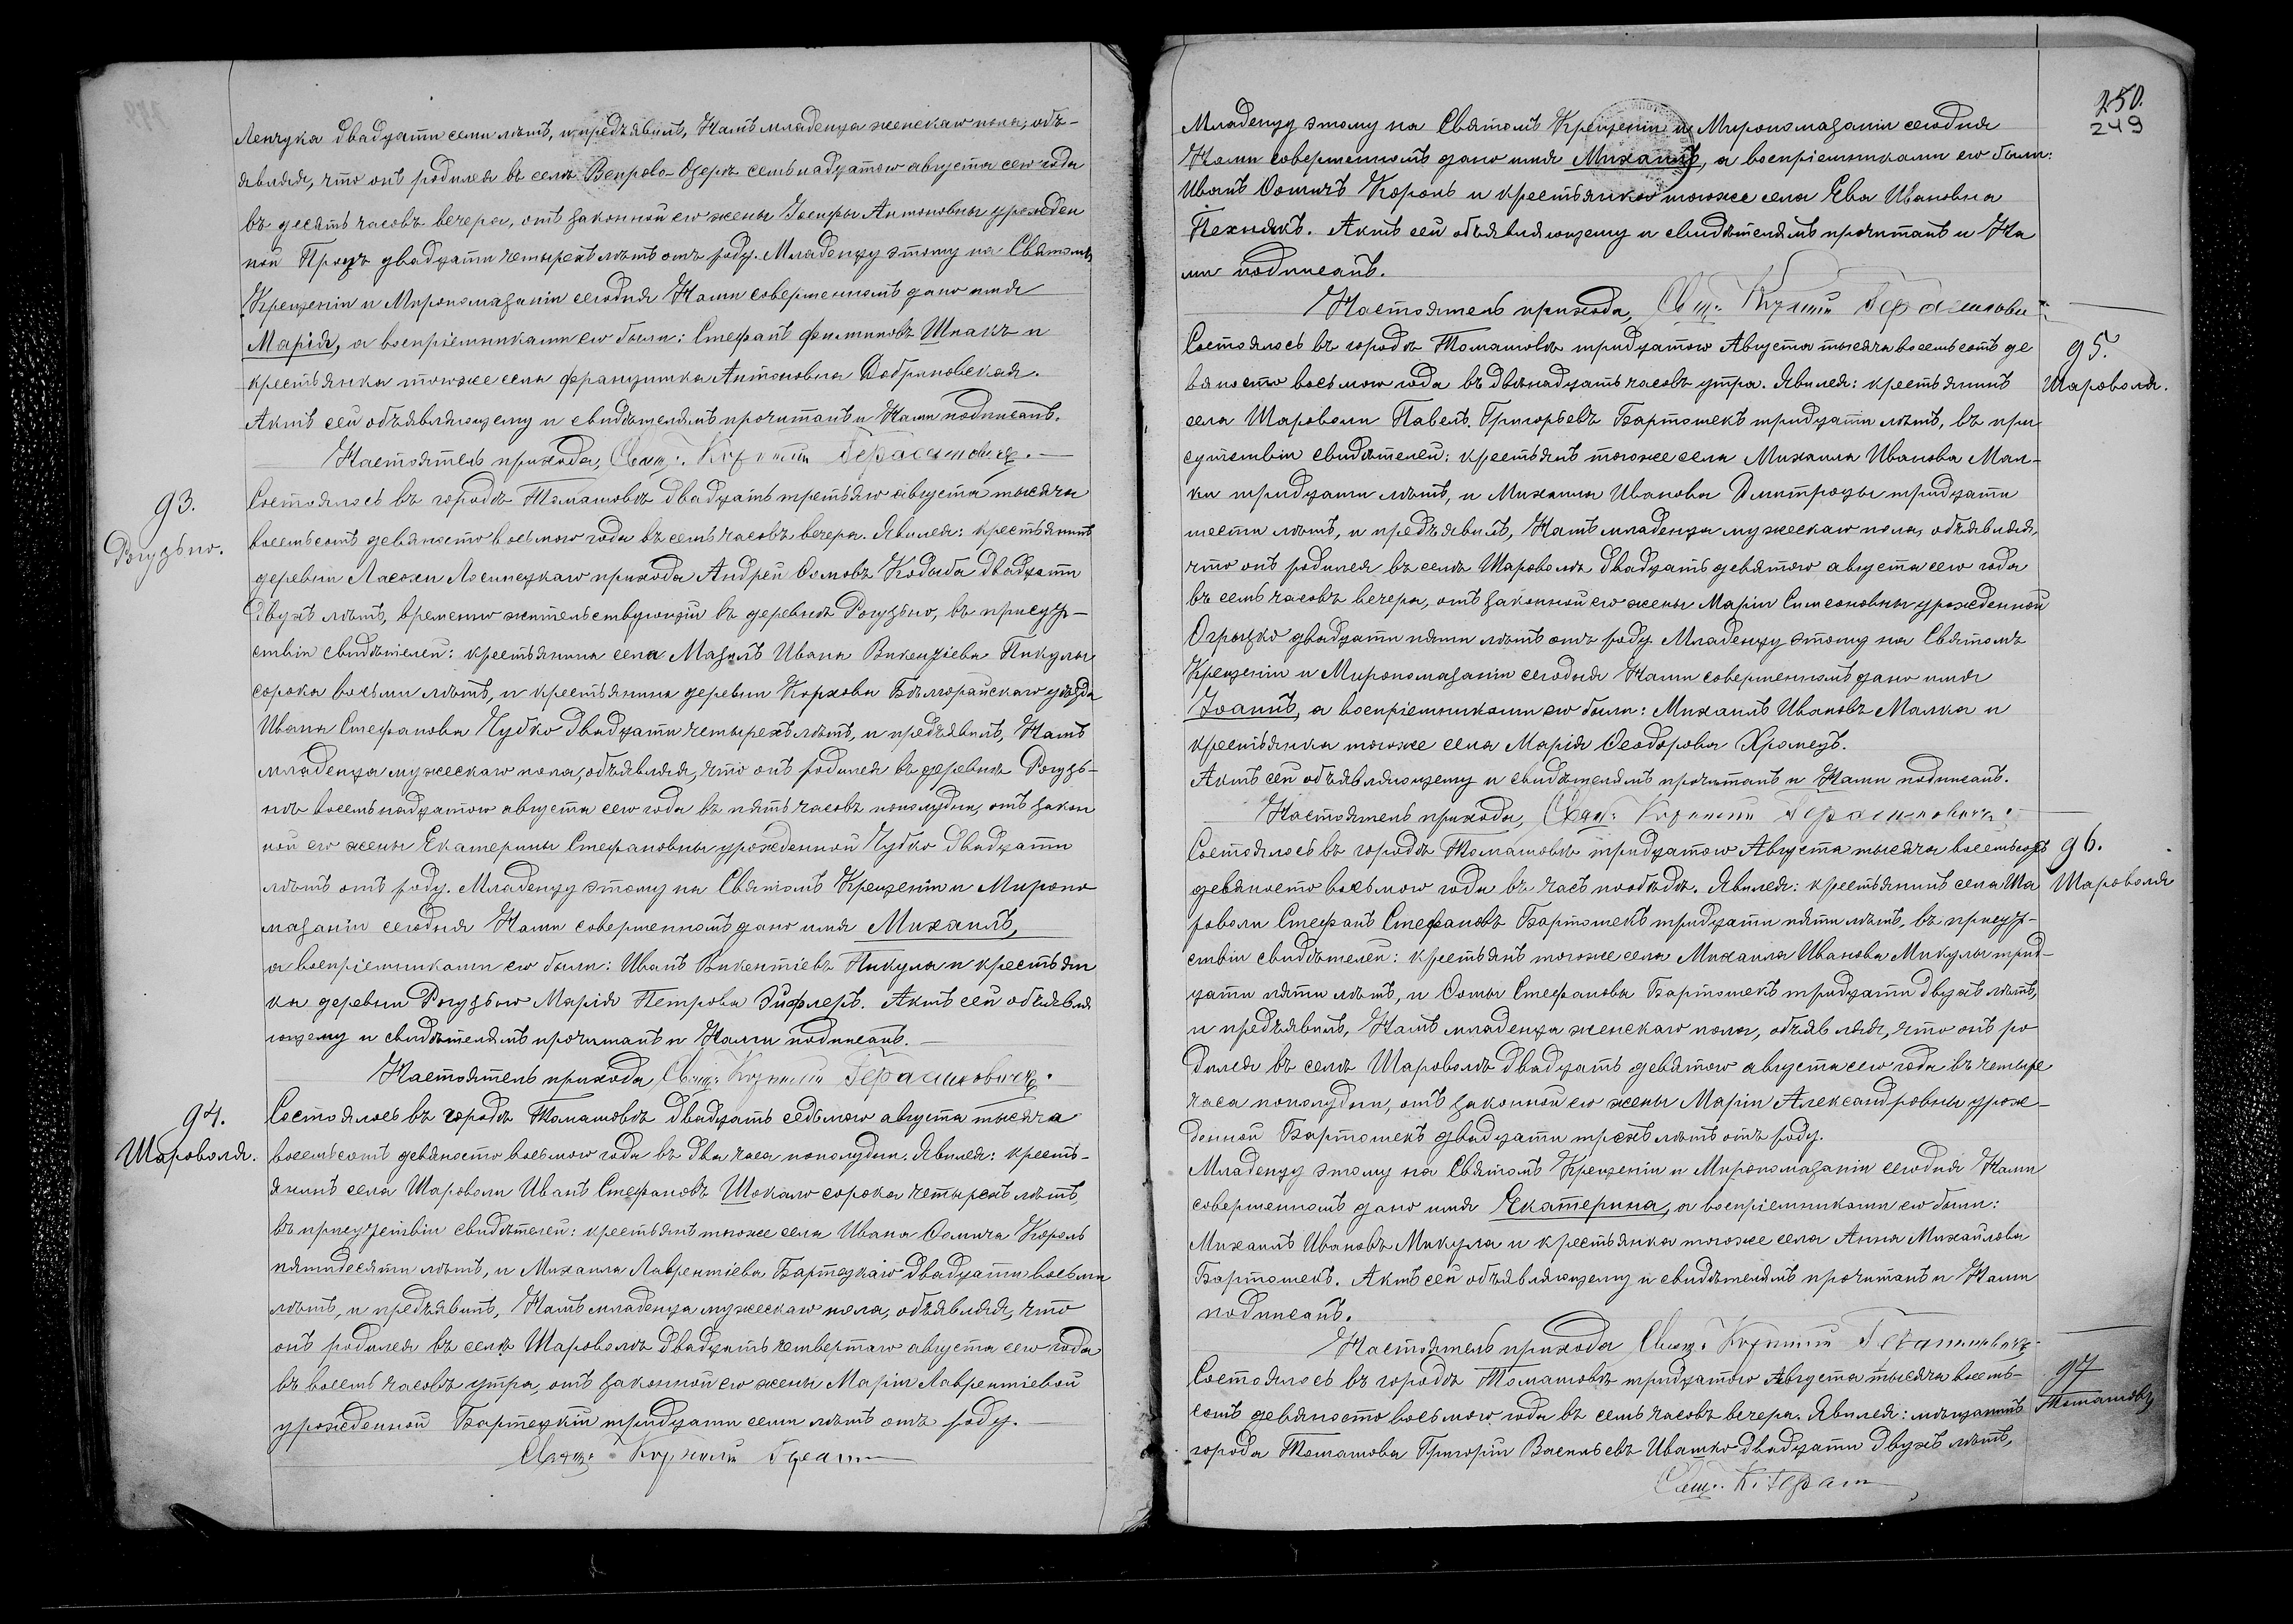 Ленчука двадцати семи лѣтъ, и предъявилъ, Намъ младенца женскаго пола, объ-
являя, что онъ родился въ селѣ Вепрово-Озерѣ семьнадцатого августа сего года
въ десять часовъ вечера, отъ законной его жены Іосифы Антоновны урожден
ной Процъ двадцати четырехъ лѣтъ отъ роду. Младенцу этому на Святомъ
Крещеніи и Миропомазаніи сегодня Нами совершенномъ дано имя
Марія, а воспріемниками его были: Стефанъ Филиповъ Шпакъ и
крестьянка того же села Францишка Антоновна Добряновская.
Актъ сей объявляющему и свидѣтелямъ прочитанъ и Нами подписанъ.
Настоятель прихода, Свящ. Корнилій Герасимовичъ.
93.
Рогузьно.
Состоялось въ городѣ Томашовѣ двадцать третьяго августа тысяча
восемьсотъ девяносто восьмого года въ семь часовъ вечера. Явился: крестьянинъ
деревни Ласохи Лосинецкаго прихода Андрей Ѳомовъ Кодыба двадцати
двухъ лѣтъ, временно жительствующій въ деревнѣ Рогузьно, въ присут-
ствіи свидѣтелей: крестьянина села Мазилъ Ивана Викентіева Пикулы
сорока восьми лѣтъ, и крестьянина деревни Корхова Бѣлгорайскаго уѣзда
Ивана Стефанова Чубко двадцати четырехъ лѣтъ, и предъявилъ, Намъ
младенца мужескаго пола, объявляя, что онъ родился въ деревнѣ Рогузь-
нѣ восемьнадцатого августа сего года въ пять часовъ пополудни, отъ закон
ной его жены Екатерины Стефановны урожденной Чубко двадцати
лѣтъ отъ роду. Младенцу этому на Святомъ Крещеніи и Миропо
мазаніи сегодня Нами совершенномъ дано имя Михаилъ,
а воспріемниками его были: Иванъ Викентіевъ Пикула и крестьян
ка деревни Рогузьно Марія Петрова Зифлеръ. Актъ сей объявля
ющему и свидѣтелямъ прочитанъ и Нами подписанъ.
Настоятель прихода, Свящ. Корнилій Герасимовичъ.
94.
Шароволя.
Состоялось въ городѣ Томашовѣ двадцать седьмого августа тысяча
восемьсотъ девяносто восьмого года въ два часа пополудни. Явился: кресть-
янинъ села Шароволи Иванъ Стефановъ Шокало сорока четырехъ лѣтъ,
въ присутствіи свидѣтелей: крестьянъ того же села Ивана Ѳомича Король
пятидесяти лѣтъ, и Михаила Лаврентіева Бартецкаго двадцати восьми
лѣтъ, и предъявилъ, Намъ младенца мужескаго пола, объявляя, что
онъ родился въ селѣ Шароволѣ двадцать четвертаго августа сего года
въ восемь часовъ утра, отъ законной его жены Маріи Лаврентіевой
урожденной Бартецкій тридцати семи лѣтъ отъ роду.
Свящ. Корнилій Герасим
250.
249
Младенцу этому на Святомъ Крещеніи и Миропомазаніи сегодня
Нами совершенномъ дано имя Михаилъ, а воспріемниками его были:
Иванъ Ѳомичъ Король и крестьянка того же села Ева Ивановна
Пехнякъ. Актъ сей объявляющему и свидѣтелямъ прочитанъ и На
ми подписанъ.
Настоятель прихода, Свящ. Корнилій Герасимовичъ
95.
Шароволя.
Состоялось въ городѣ Томашовѣ тридцатого Августа тысяча восемьсотъ де
вяносто восьмого года въ двѣнадцать часовъ утра. Явился: крестьянинъ
села Шароволи Павелъ Григорьевъ Бартошекъ тридцати лѣтъ, въ при
сутствіи свидѣтелей: крестьянъ того же села Михаила Иванова Мал-
ки тридцати лѣтъ, и Михаила Иванова Дмитроцы тридцати
шести лѣтъ, и предъявилъ, Намъ младенца мужескаго пола, объявляя,
что онъ родился въ селѣ Шароволѣ двадцать девятого августа сего года
въ семь часовъ вечера, отъ законной его жены Маріи Симеоновны урожденной
Огрыцко двадцати пяти лѣтъ отъ роду. Младенцу этому на Святомъ
Крещеніи и Миропомазаніи сегодня Нами совершенномъ дано имя
Іоаннъ, а воспріемниками его были: Михаилъ Ивановъ Малка и
крестьянка того же села Марія Ѳеодорова Хромецъ.
Актъ сей объявляющему и свидѣтелямъ прочитанъ и Нами подписанъ.
Настоятель прихода, Свящ. Корнилій Герасимовичъ.
96.
Шароволя
Состоялось въ городѣ Томашовѣ тридцатого Августа тысяча восемьсотъ
девяносто восьмого года въ часъ пообѣдѣ. Явился: крестьянинъ села Ша
роволи Стефанъ Стефановъ Бартошекъ тридцати пяти лѣтъ, въ присут-
ствіи свидѣтелей: крестьянъ того же села Михаила Иванова Микулы трид-
цати пяти лѣтъ, и Ѳомы Стефанова Бартошекъ тридцати двухъ лѣтъ,
и предъявилъ, Намъ младенца женскаго пола, объявляя, что онъ ро
дился въ селѣ Шароволѣ двадцать девятого августа сего года въ четыре
часа пополудни, отъ законной его жены Маріи Александровны урож-
денной Бартошекъ двадцати трехъ лѣтъ отъ роду.
Младенцу этому на Святомъ Крещеніи и Миропомазаніи сегодня Нами
совершенномъ дано имя Екатерина, а воспріемниками его были:
Михаилъ Ивановъ Микула и крестьянка того же села Анна Михайлова
Бартошекъ. Актъ сей объявляющему и свидѣтелямъ прочитанъ и Нами
подписанъ.
Настоятель прихода Свящ. Корнилій Герасимовичъ
97
Томашовъ
Состоялось въ городѣ Томашовѣ тридцатого Августа тысяча восемь-
сотъ девяносто восьмого года въ семь часовъ вечера. Явился: мѣщанинъ
города Томашова Григорій Васильевъ Ивашко двадцати двухъ лѣтъ,
Свящ. К. Герасим